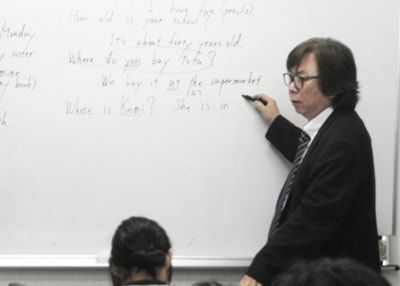 I have five (pencils).
How old is your school?
Munday
It's about forty years old.
y sister.
Where do you buy Tofu?
mine
We buy it at the supermarket.
y book)
(a)
Where is Kumi? She is in